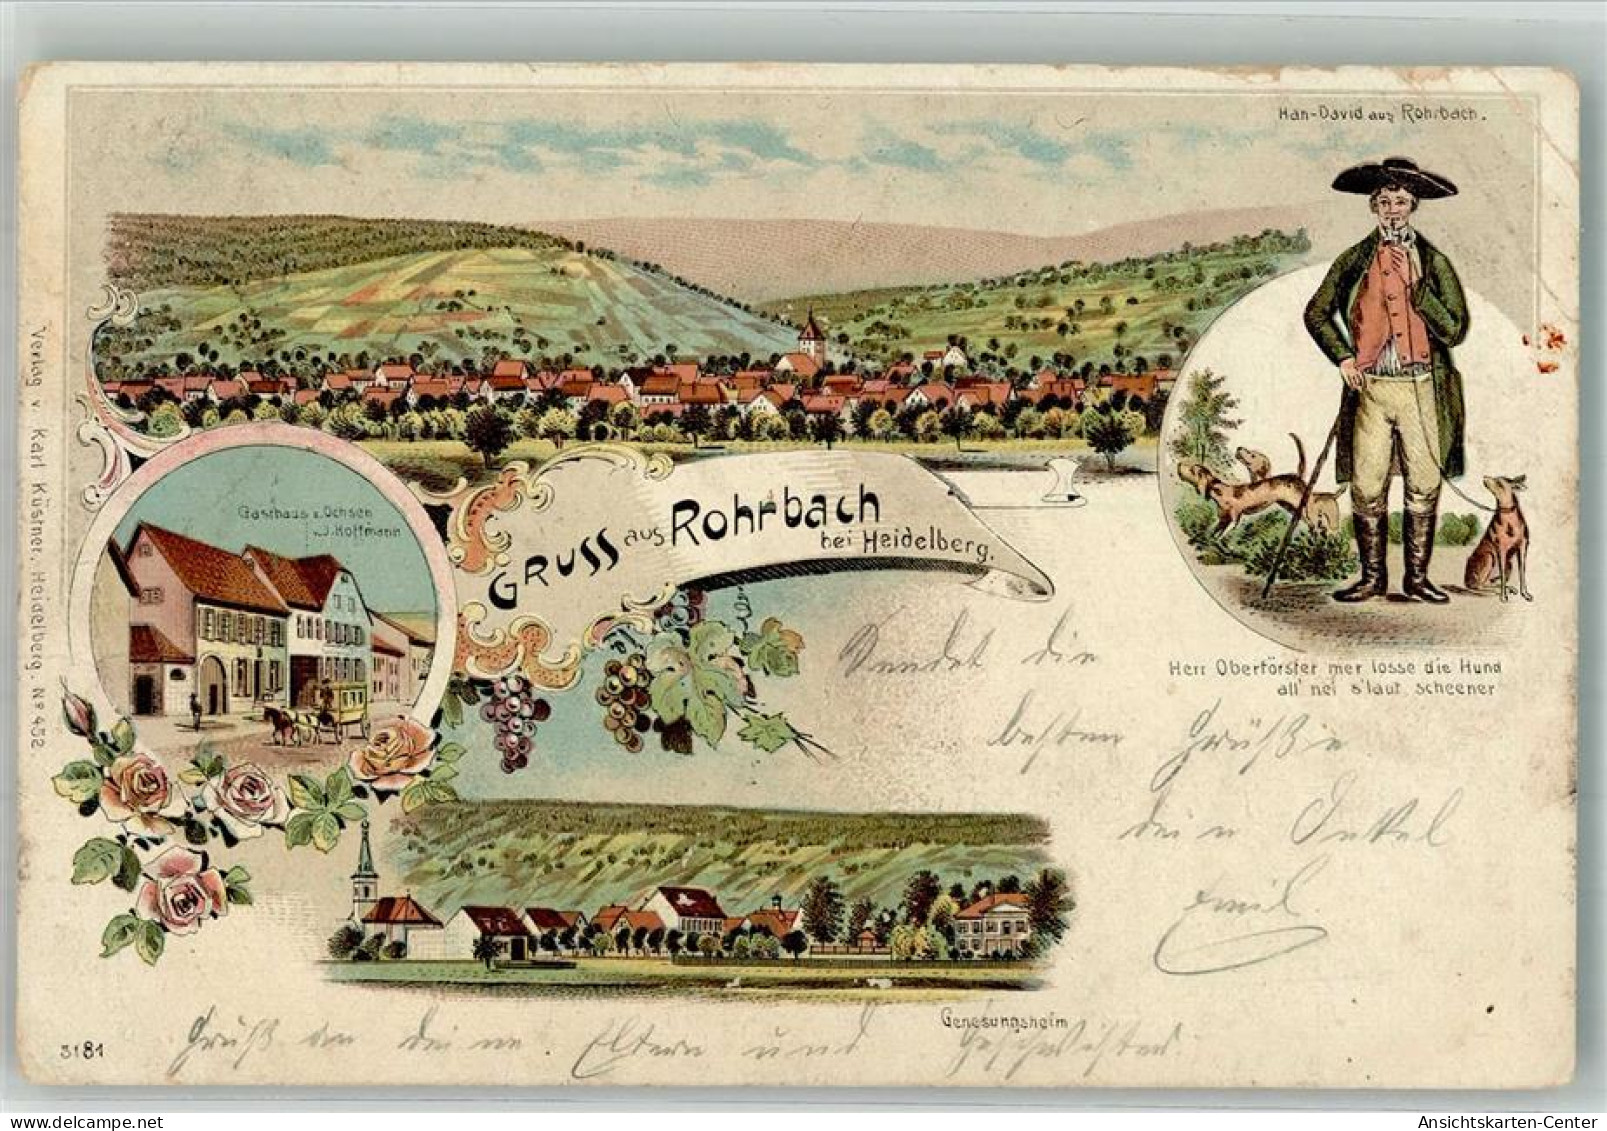 Han-David aus Rohrbach.
Gasthaus z. Ochsen
v. J. Hoffmann
GRUSS aus Rohrbach
bei Heidelberg.
Herr Oberförster mer losse die Hund
all' nei s'laut scheener
Verlag v. Karl Küstner, Heidelberg. No 452.
Sendet die
besten Grüße
dein Onkel
Emil
Genesungsheim
Gruß an deine Eltern und Geschwister.
3181
Ansichtskarten-Center